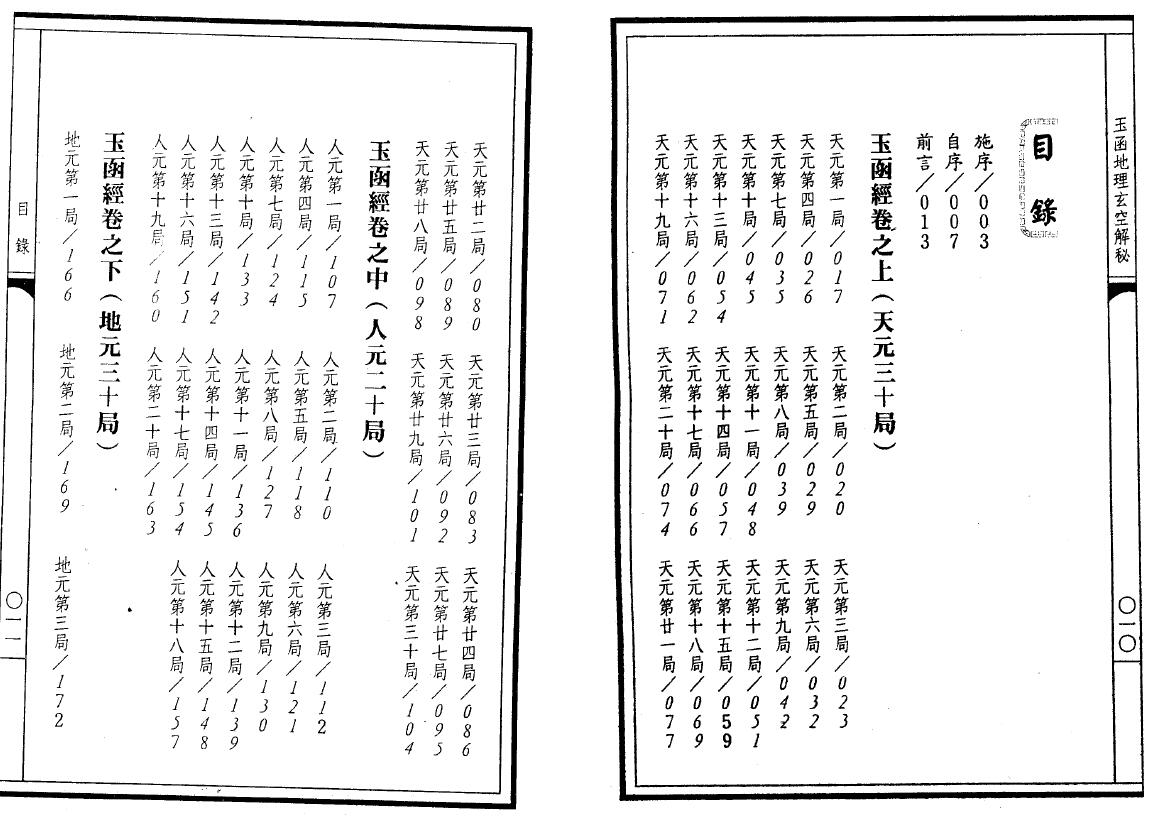 玉函地理玄空解秘
〇一〇
目錄
施序／003
自序／007
前言／013
玉函經卷之上（天元三十局）
天元第一局／017　天元第二局／020　天元第三局／023
天元第四局／026　天元第五局／029　天元第六局／032
天元第七局／035　天元第八局／039　天元第九局／042
天元第十局／045　天元第十一局／048　天元第十二局／051
天元第十三局／054　天元第十四局／057　天元第十五局／059
天元第十六局／062　天元第十七局／066　天元第十八局／069
天元第十九局／071　天元第二十局／074　天元第廿一局／077
天元第廿二局／080　天元第廿三局／083　天元第廿四局／086
天元第廿五局／089　天元第廿六局／092　天元第廿七局／095
天元第廿八局／098　天元第廿九局／101　天元第三十局／104
玉函經卷之中（人元二十局）
人元第一局／107　人元第二局／110　人元第三局／112
人元第四局／115　人元第五局／118　人元第六局／121
人元第七局／124　人元第八局／127　人元第九局／130
人元第十局／133　人元第十一局／136　人元第十二局／139
人元第十三局／142　人元第十四局／145　人元第十五局／148
人元第十六局／151　人元第十七局／154　人元第十八局／157
人元第十九局／160　人元第二十局／163
玉函經卷之下（地元三十局）
地元第一局／166　地元第二局／169　地元第三局／172
目錄
〇一一